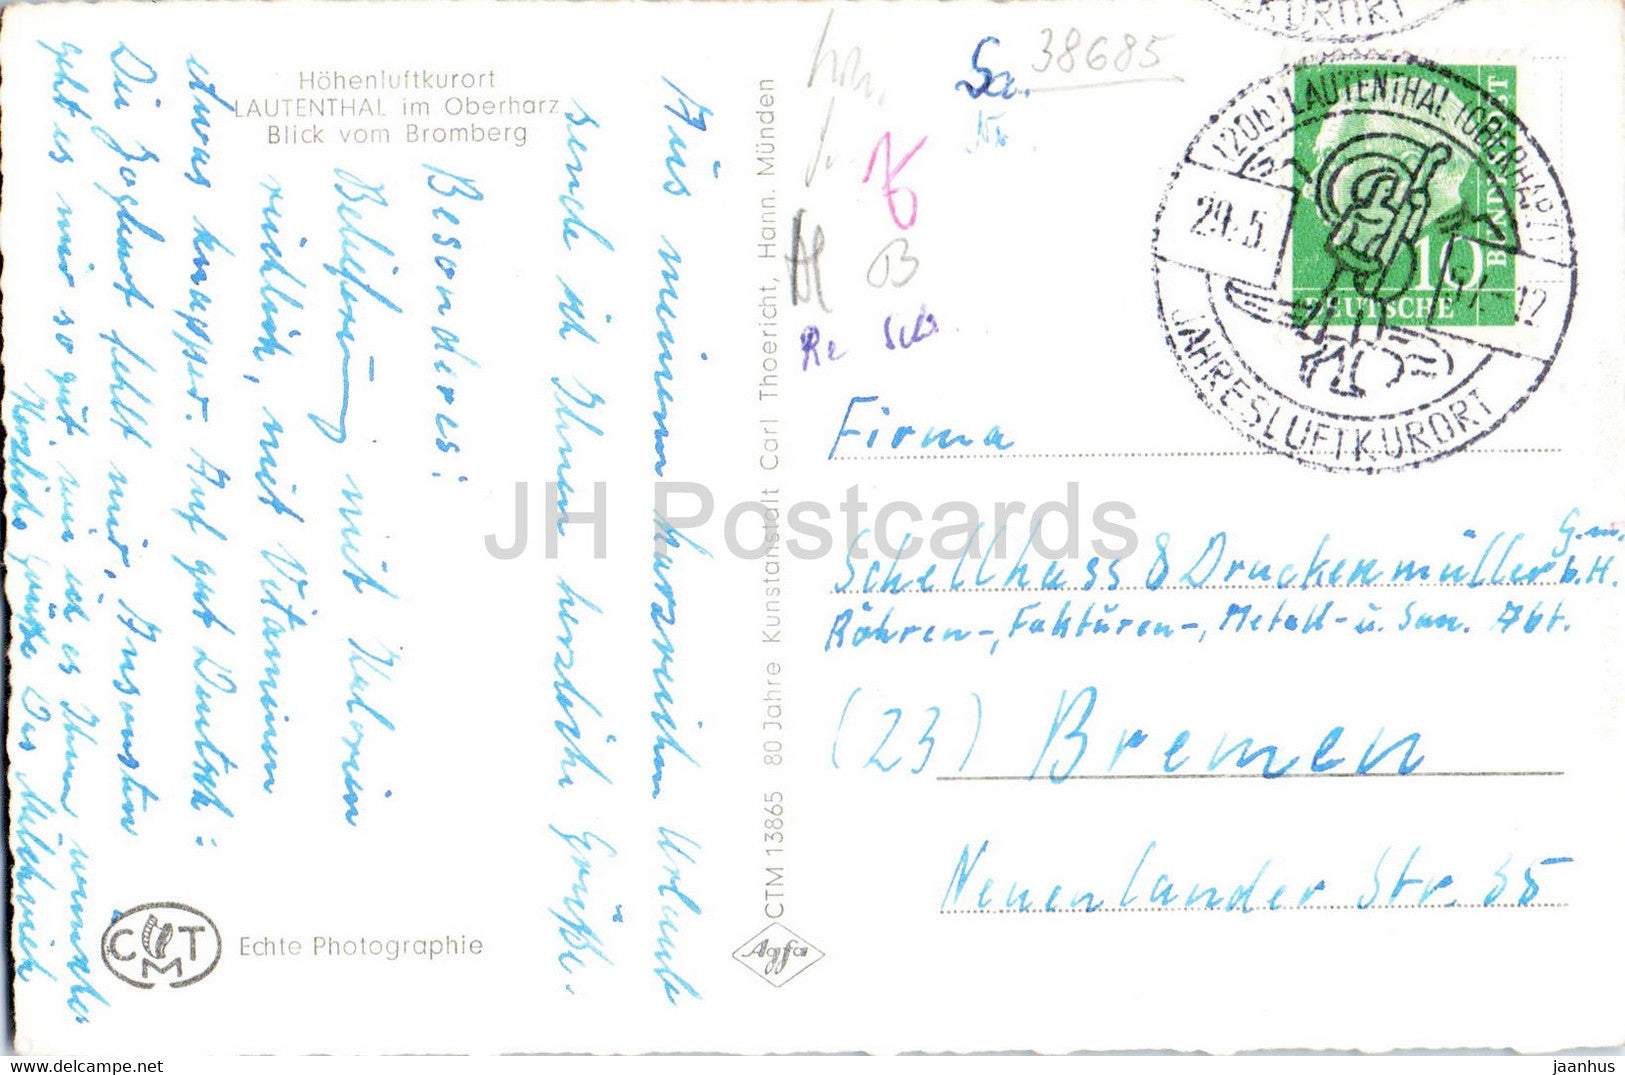 Höhenluftkurort
LAUTENTHAL im Oberharz
Blick vom Bromberg
Aus meinem kurzreichen Urlaub
sende ich Ihnen herzliche Grüße.
Besonderes:
Belieferung mit Kalorien
reichlich, mit Vitaminen
etwas knapper. Auf gut Deutsch:
Der Joghurt fehlt mir. Ansonsten
geht es mir so gut wie ich es Ihnen wünsche
Herzliche Grüße Der Milchmich
CTM
Echte Photographie
CTM 13865 80 Jahre Kunstanstalt Carl Thoericht, Hann. Münden
Agfa
Sa. 38685
B
Re
(20b) LAUTENTHAL (OBERHARZ)
29.5. 57-12
JAHRESLUFTKURORT
KURORT
DEUTSCHE BUNDESPOST
10
Firma
Schellhass & Druckenmüller G.m.
b.H.
Röhren-, Fakturen-, Metall- u. San. Abt.
(23) Bremen
Neuenlander Str. 35
JH Postcards
delcampe.net
jaanhus